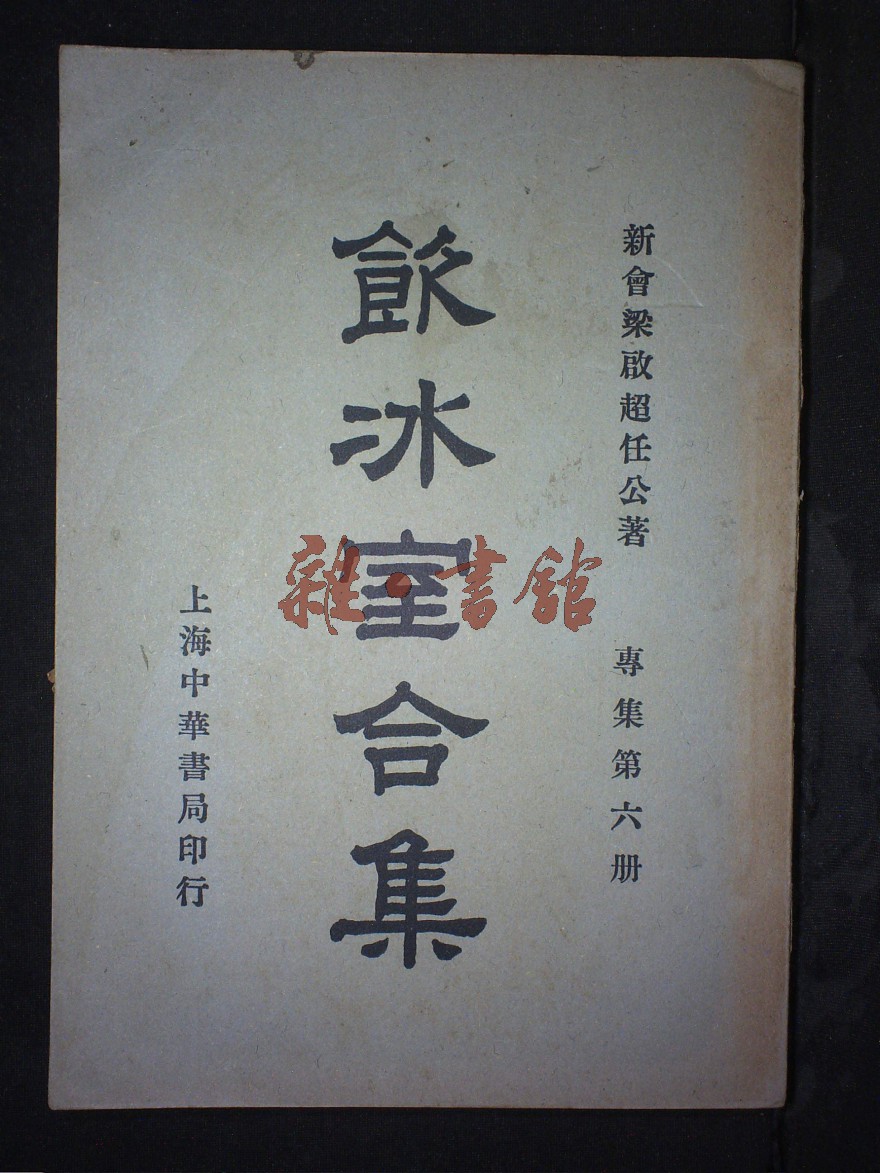 新會梁啟超任公著
專集第六册
飲冰室合集
上海中華書局印行
雜·書館